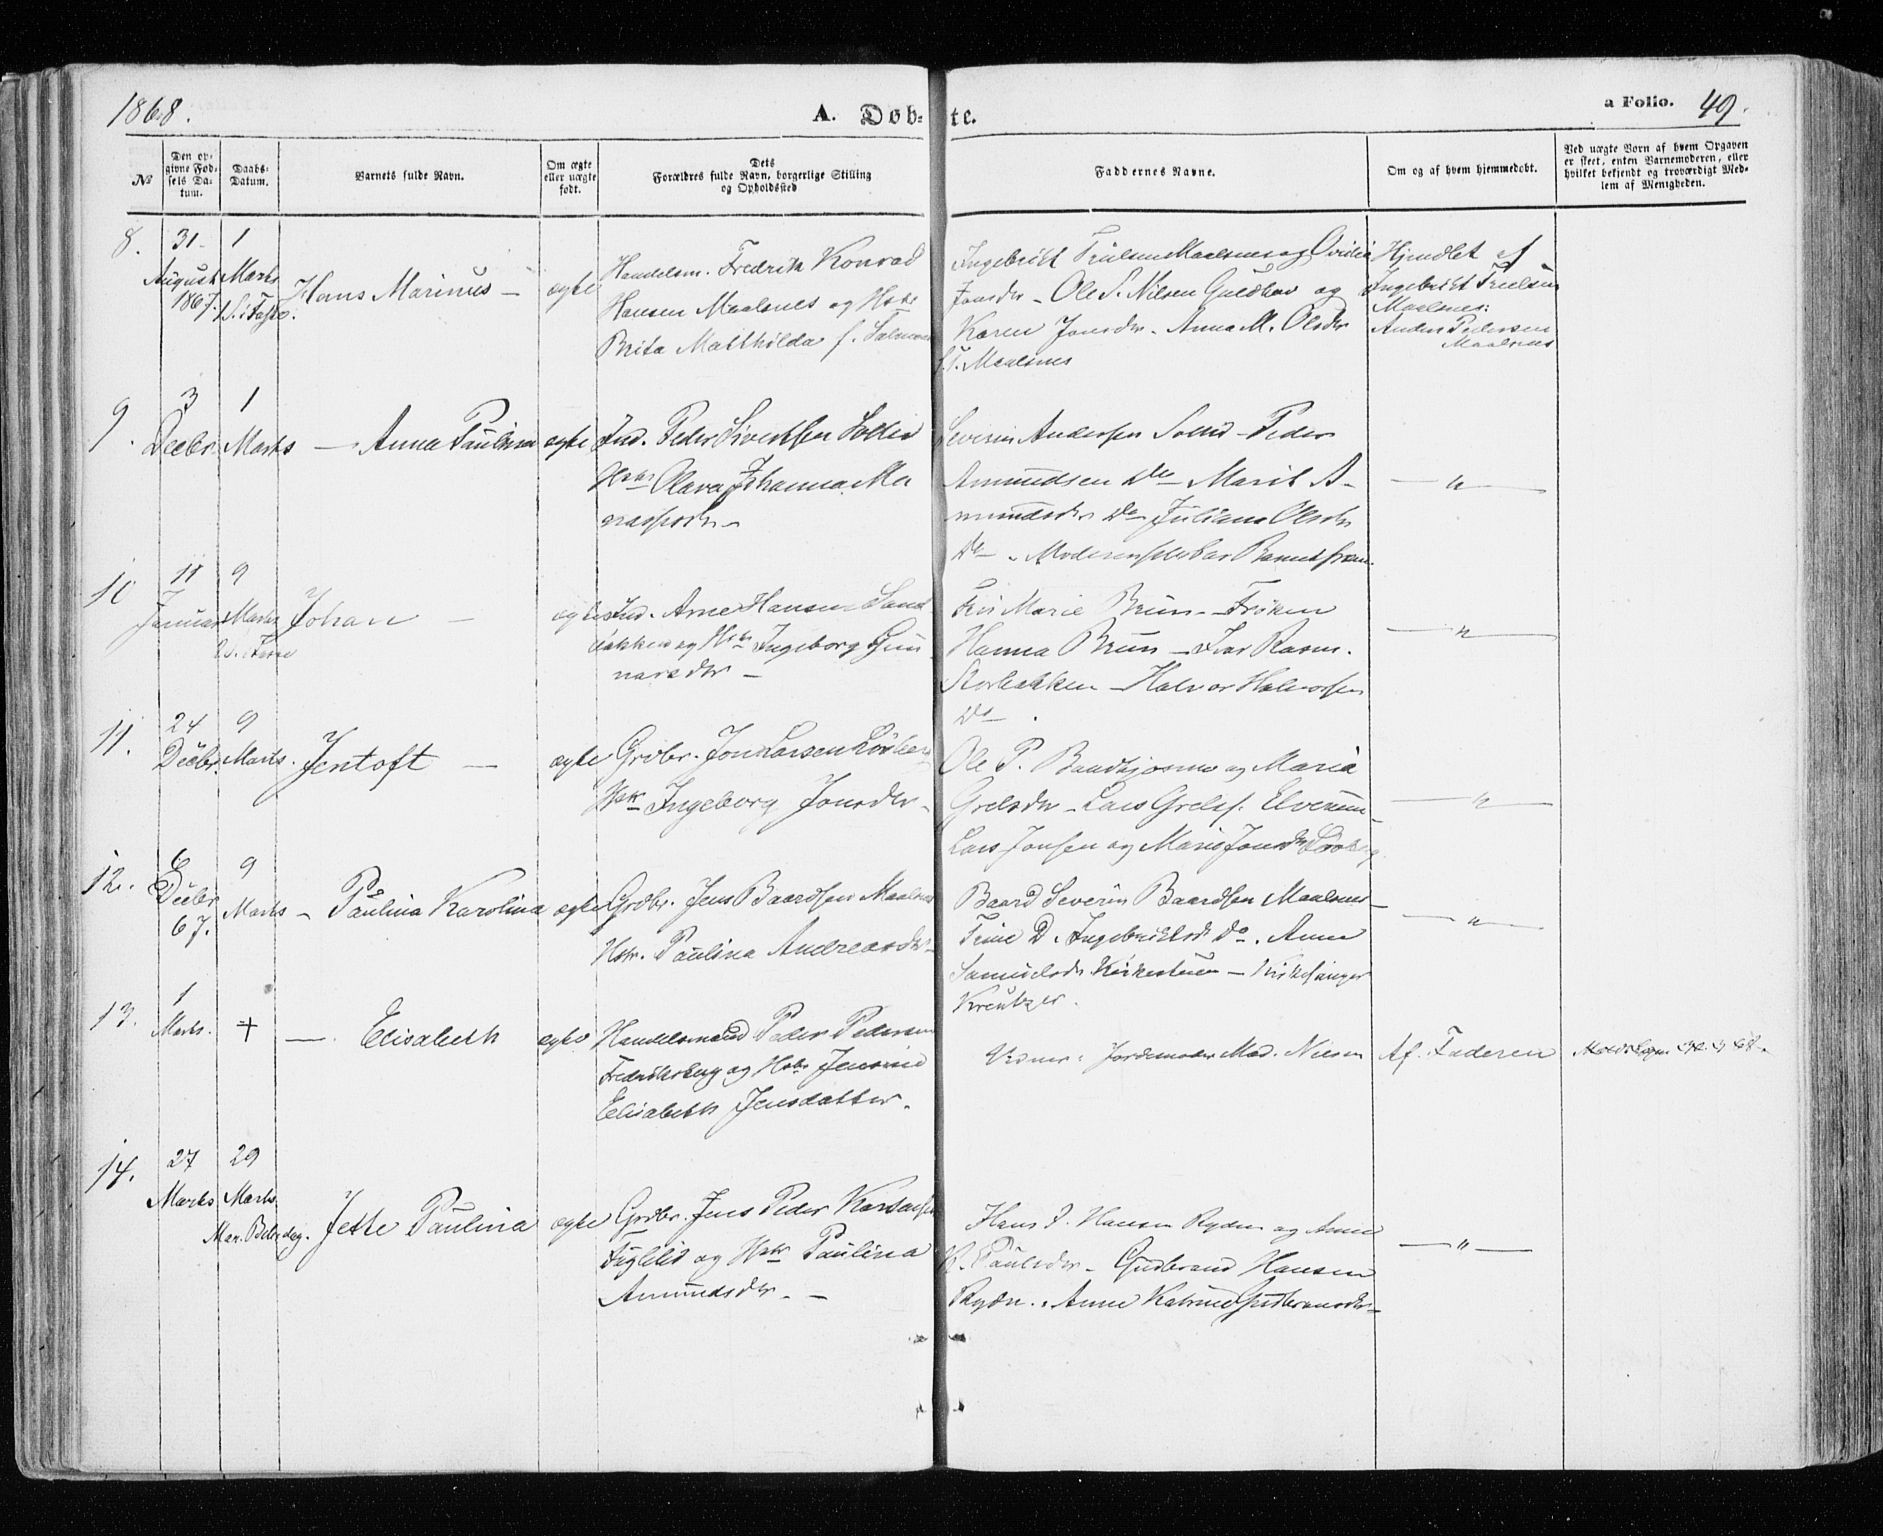 1868.
A. Døb-te.
a Folio. 49.
№
Den opgivne Fødsels Datum.
Daabs-Datum.
Barnets fulde Navn.
Om ægte eller uægte født.
Dets Forældres fulde Navn, borgerlige Stilling og Opholdssted
Faddernes Navne.
Om og af hvem hjemmedøbt.
Ved uægte Børn af hvem Opgaven er skeet, enten Barnemoderen, eller hvilket bekjendt og troværdigt Medlem af Menigheden.
8.
31 August 1867.
1 Marts 1 S. i Faste:
Hans Marinus —
ægte
Handelsm. Fredrik Konrad
Hansen Maalsnes og Hstr
Brita Matthilda f.
Ingebrigt Trulsen Maalsnes og
Jonsdr — Ole S. Nilsen Guldhav og
Karen Jonsdr. Anna M. Olsdr
Maalsnes
Hjmdbt af
Ingebrigt Trulsen
Maalsnes:
Anders Pedersen
Maalsnes
9.
3 Decbr
1 Marts
— Anna Paulina
ægte
Ind. Peder Sivertsen Solli
Hstr Olava Johanna Ma
nassesdr —
Severin Andersen — Peder
Amundsen Do Marit A-
mundsdr Do Juliana Olsdr
Do — Moderen selv bar Barnet frem.
— " —
10
11 Januar
9 Marts 2 S. i Faste
Johan —
ægte
Ind. Arne Hansen Sand
bakken og Hstr Ingeborg Gun
narsdr —
Marie Brun — Frøken
Hanna Brun — Ivar Rasm.
Storbakken — Halvor Halvorsen
Do.
— " —
11.
24 Decbr.
9 Marts.
Jentoft —
ægte
Grdbr. Jon Larsen
Hstr Ingeborg Jonsdr —
Ole P. og Maria
Grelsdr — Lars Grelss. Elvenum —
Lars Jonsen og Marie Jonsdr
— " —
12.
6 Decbr 67.
9 Marts
— Paulina Karolina
ægte
Grdbr. Jens Baardsen Maalsnes
Hstr. Paulina Andreasdr —
Baard Severin Baardsen Maalsnes —
Trine D. Ingebrigtsdr Do. Anna
Samuelsdr Kirkestuen — Kirkesanger
Kreutzer.
— " —
13.
1 Marts.
+
— Elisabeth
ægte
Handelsmand Peder Pedersen
Fredriksberg og Hstr Jensine
Elisabeth Jensdatter.
Vidner: Jordemoder Mad. Nilsen
Af Faderen
14.
27 Marts
29 Marts. Mar. Bebdag.
Jette Paulina
ægte
Grdbr. Jens Peder
Fuglelid og Hstr Paulina
Amundsdr. —
Hans P. Hansen Rydn og Anne
K. Paulsdr — Gudbrand Hansen
Rydn. Anne Katrine Gudbransdr —
— " —